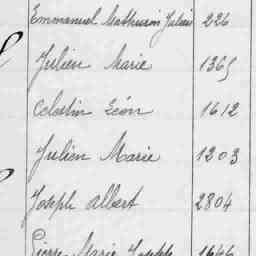 Emmanuel Mathurin Julien 226
Julien Marie 1365
Celestin Léon 1612
Julien Marie 1203
Joseph Albert 2804
Pierre Marie Joseph 1646